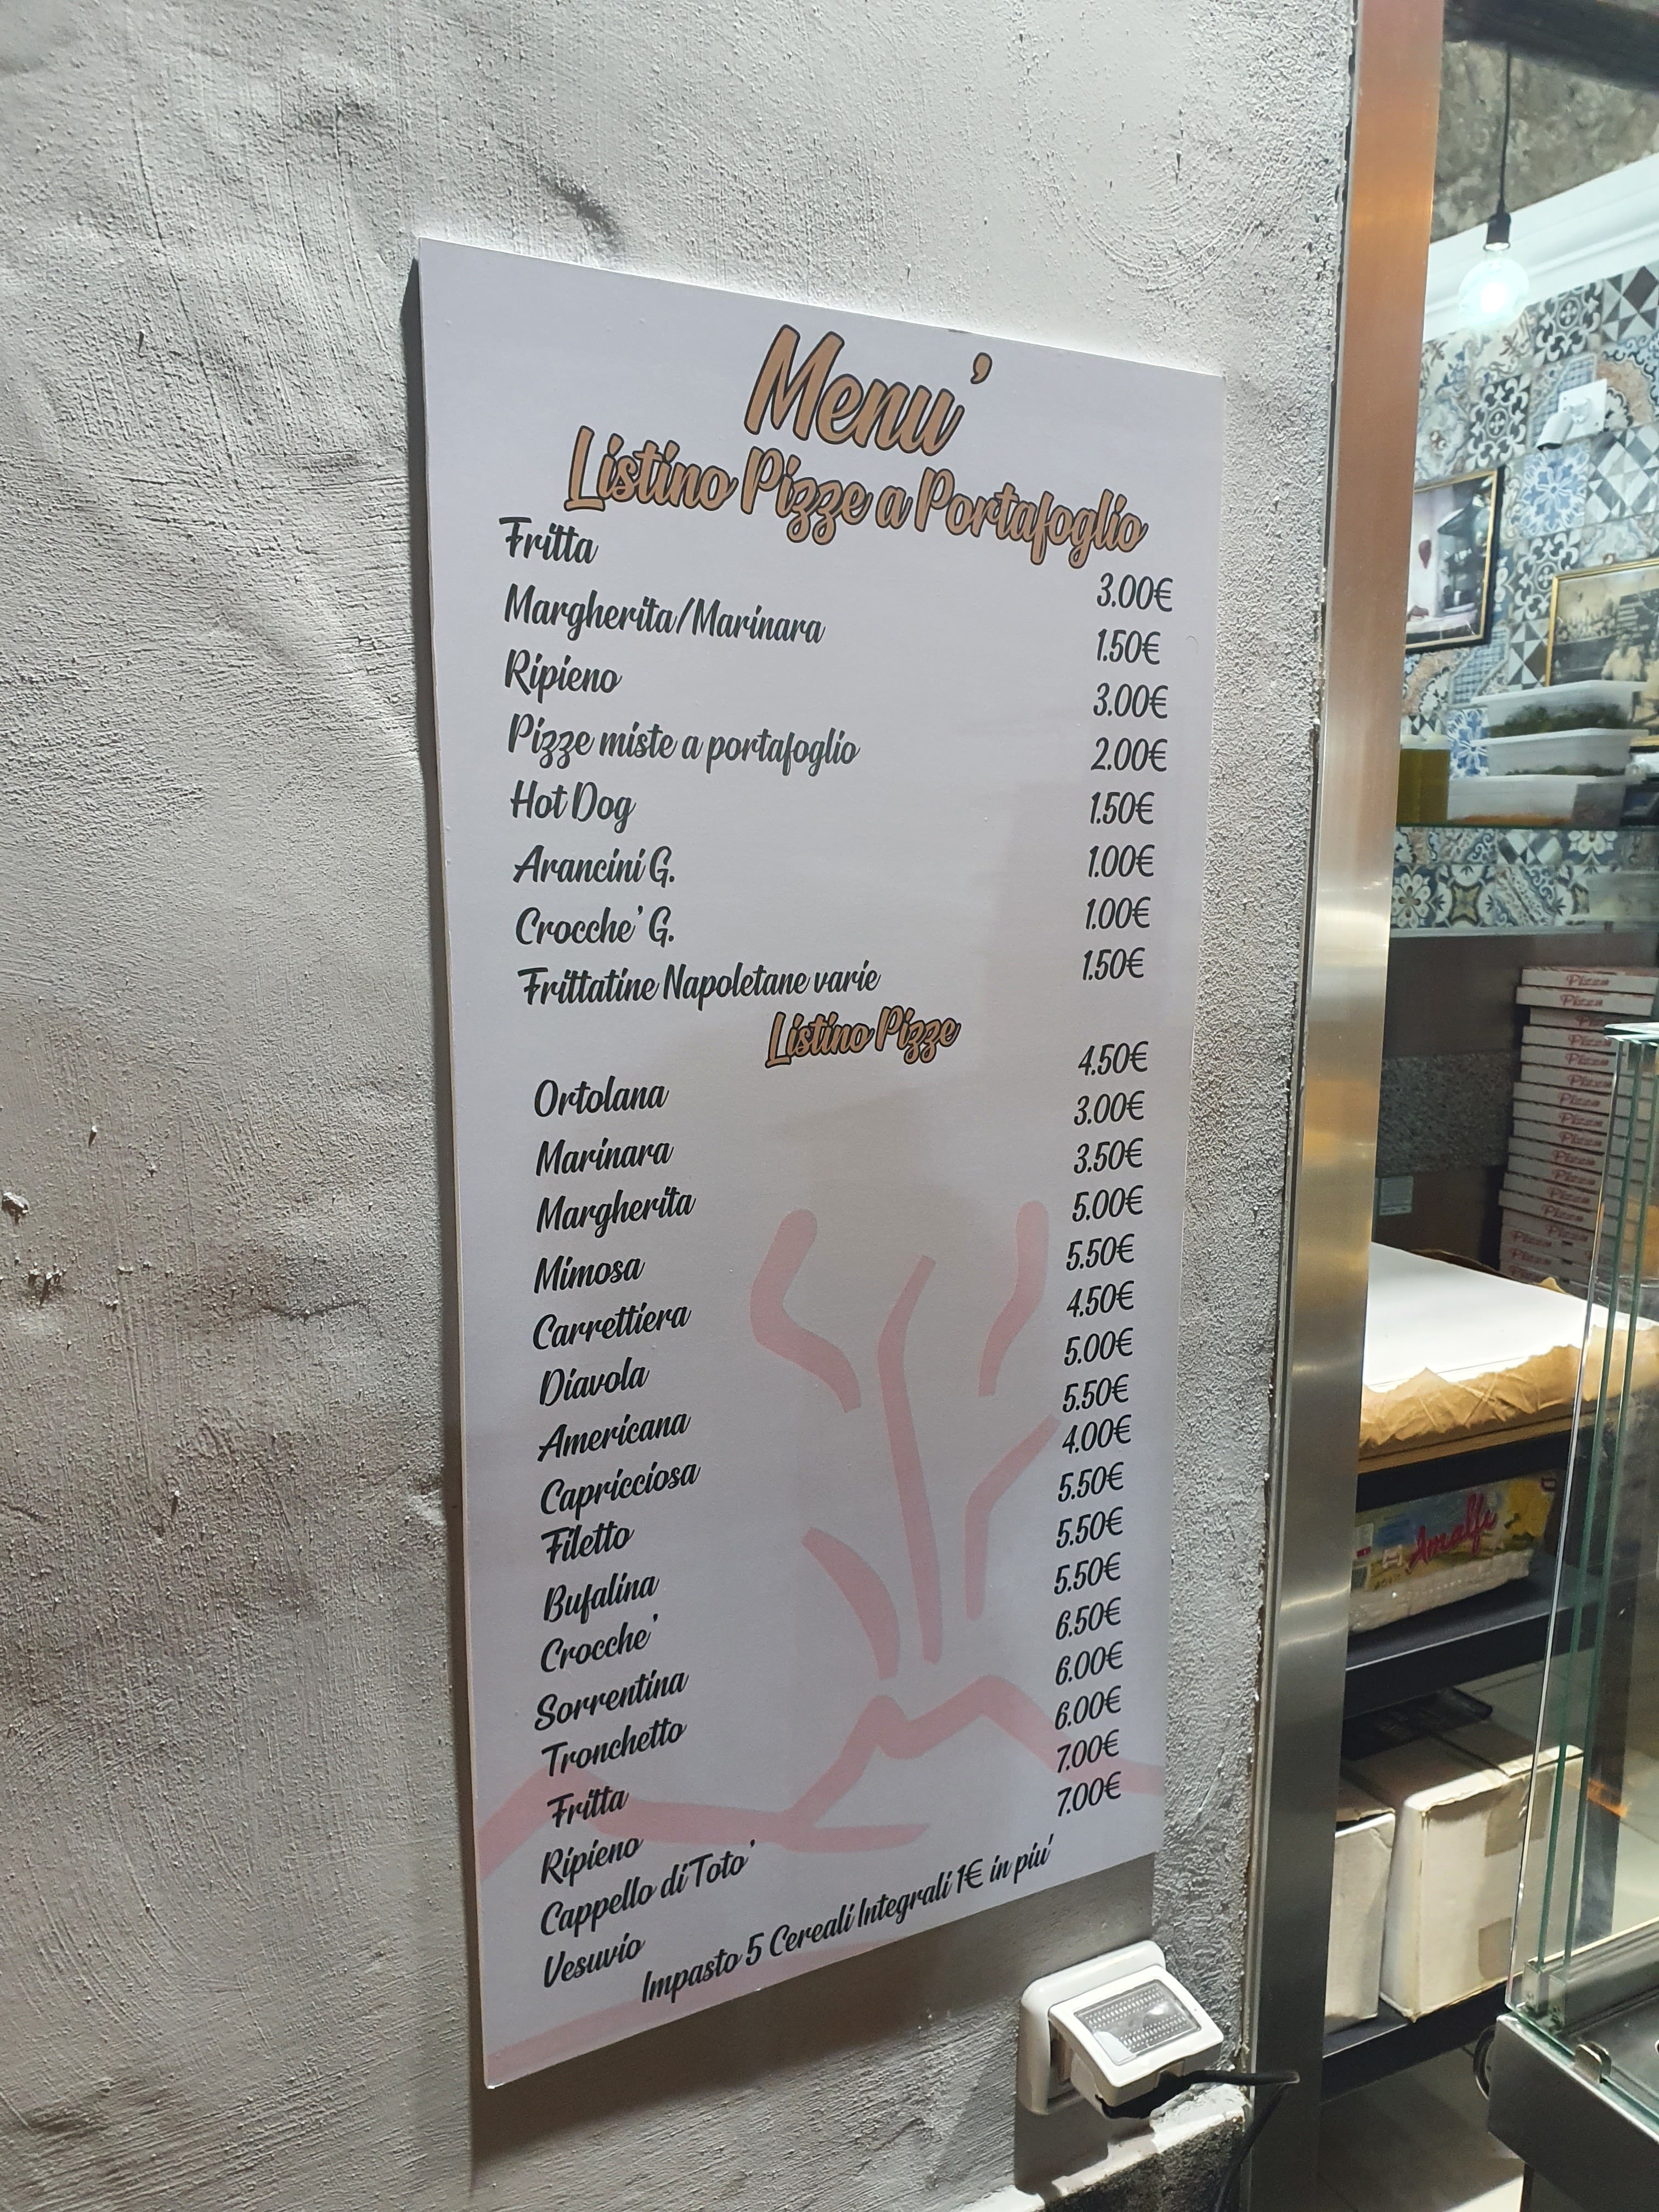 Menu'
Listino Pizze a Portafoglio
Fritta 3.00€
Margherita/Marinara 1.50€
Ripieno 3.00€
Pizze miste a portafoglio 2.00€
Hot Dog 1.50€
Arancini G. 1.00€
Crocche' G. 1.00€
Frittatine Napoletane varie 1.50€
Listino Pizze
Ortolana 4.50€
Marinara 3.00€
Margherita 3.50€
Mimosa 5.00€
Carrettiera 5.50€
Diavola 4.50€
Americana 5.00€
Capricciosa 5.50€
Filetto 4.00€
Bufalina 5.50€
Crocche' 5.50€
Sorrentina 5.50€
Tronchetto 6.50€
Fritta 6.00€
Ripieno 6.00€
Cappello di Toto' 7.00€
Vesuvio 7.00€
Impasto 5 Cereali Integrali 1€ in piu'
Pizza
Pizza
Pizza
Pizza
Pizza
Pizza
Pizza
Pizza
Pizza
Pizza
Pizza
Amalfi